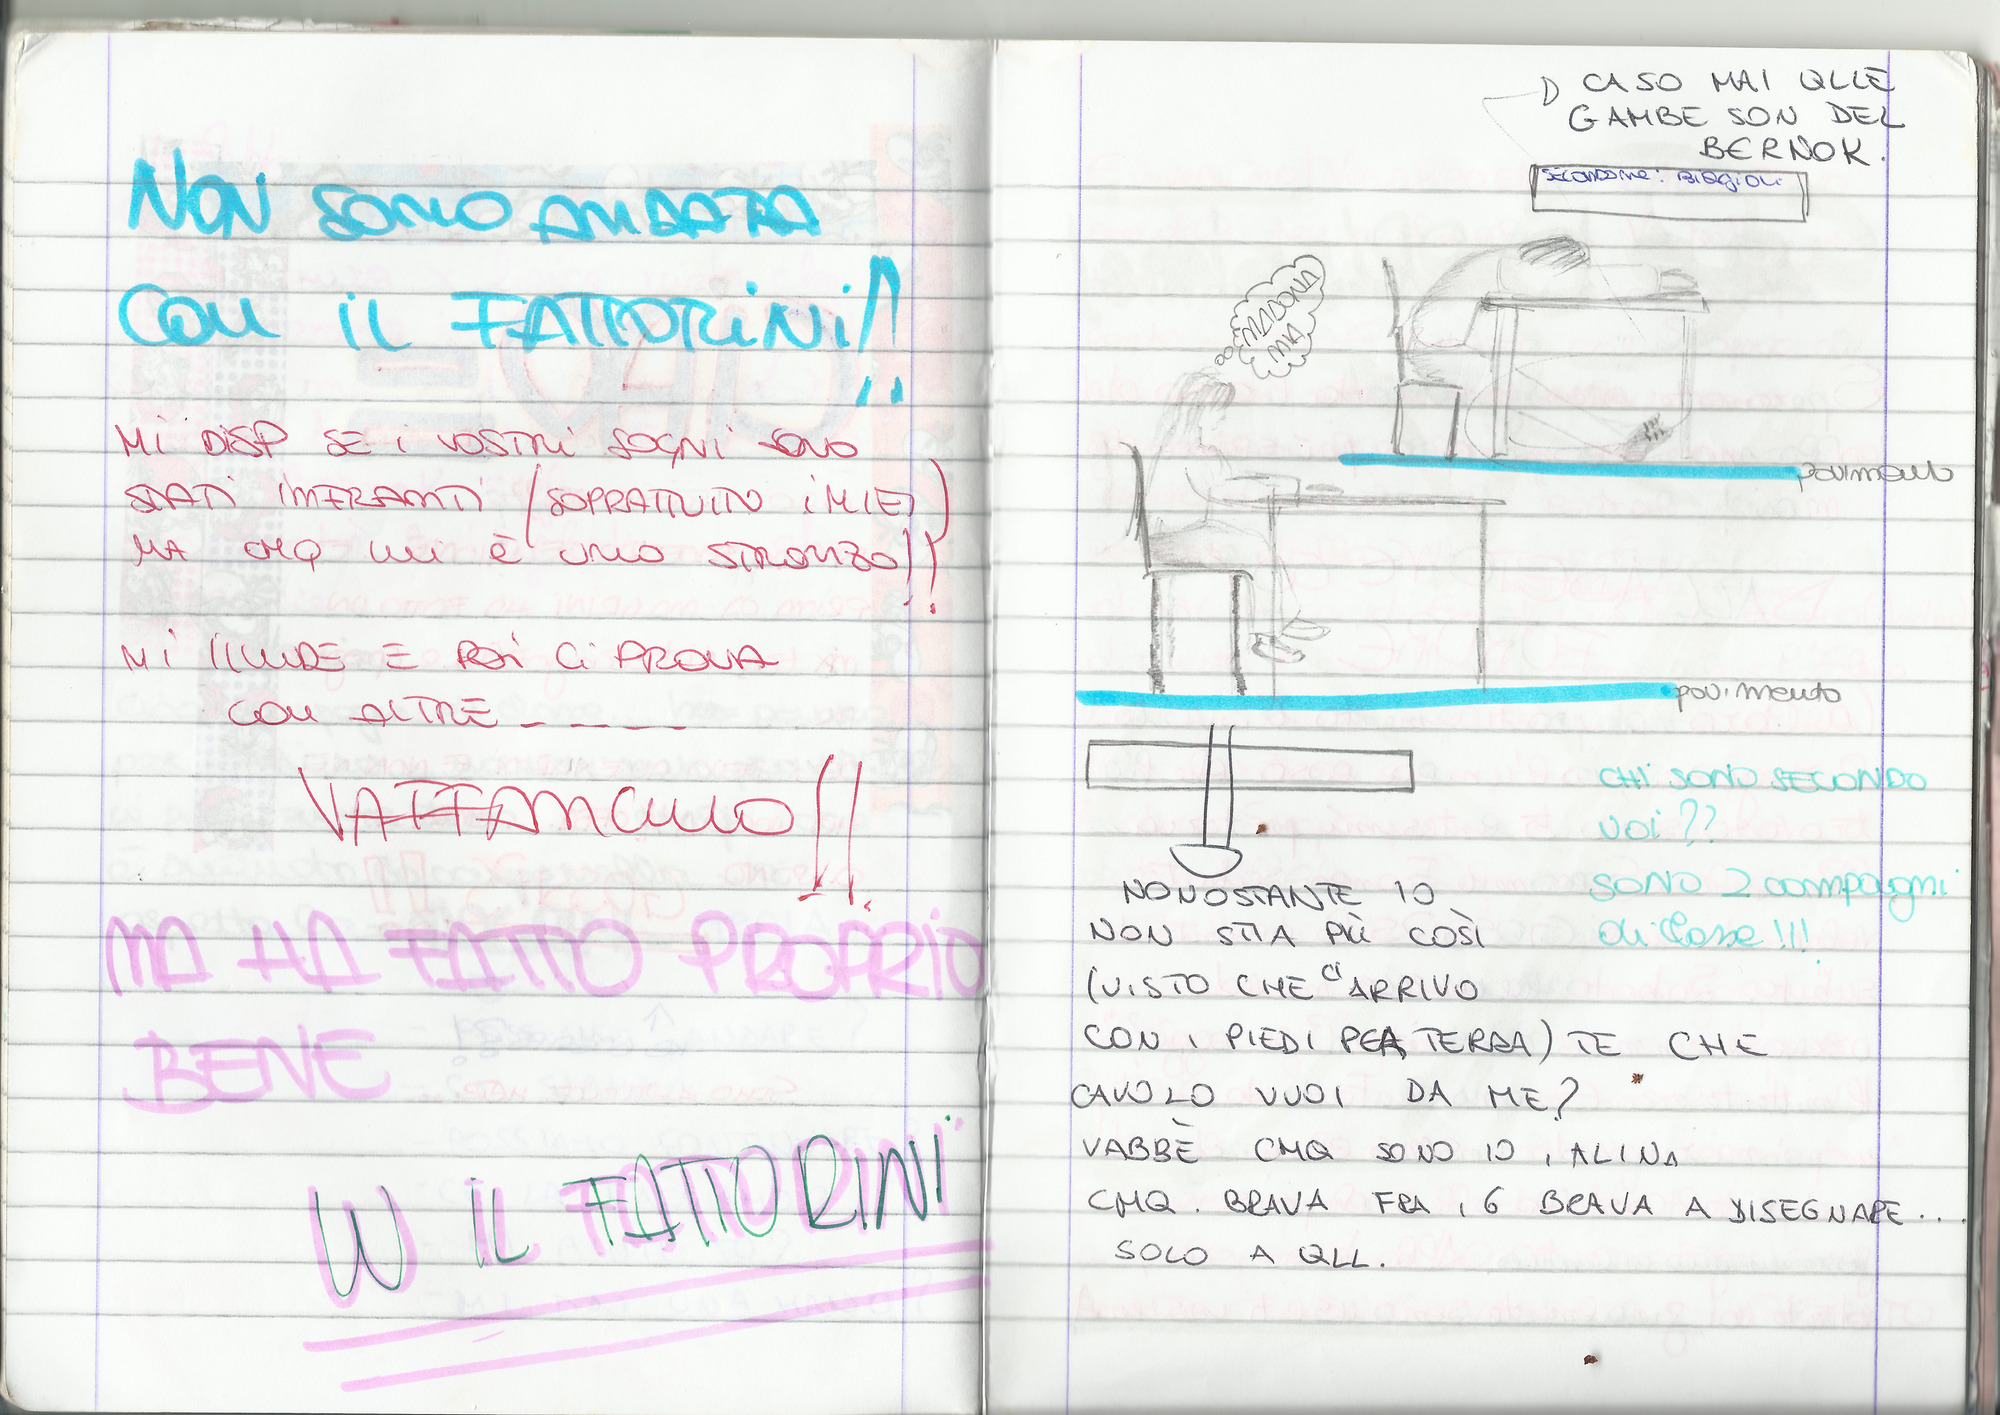 NON SONO ANDATA
CON IL FATTORINI!!
MI DISP SE I VOSTRI SOGNI SONO
STATI INFRANTI (SOPRATTUTTO I MIEI)
MA CMQ LUI È UNO STRONZO!!
MI ILLUDE E POI CI PROVA
CON ALTRE _ _ _ _
VAFFANCULO!!
MA HA FATTO PROPRIO
BENE
W IL FATTORINI
CASO MAI QLLE
GAMBE SON DEL
BERNOK.
SECONDO ME: BIAGIOLI
MADONA
MIA
pavimento
pavimento
CHI SONO SECONDO
VOI??
SONO 2 compagni
di classe!!!
NONOSTANTE IO
NON STIA PIÙ COSÌ
(VISTO CHE CI ARRIVO
CON I PIEDI PER TERRA) TE CHE
CAVOLO VUOI DA ME?
VABBÈ CMQ SONO IO, ALINA
CMQ. BRAVA FRA, 6 BRAVA A DISEGNARE...
SOLO A QLL.